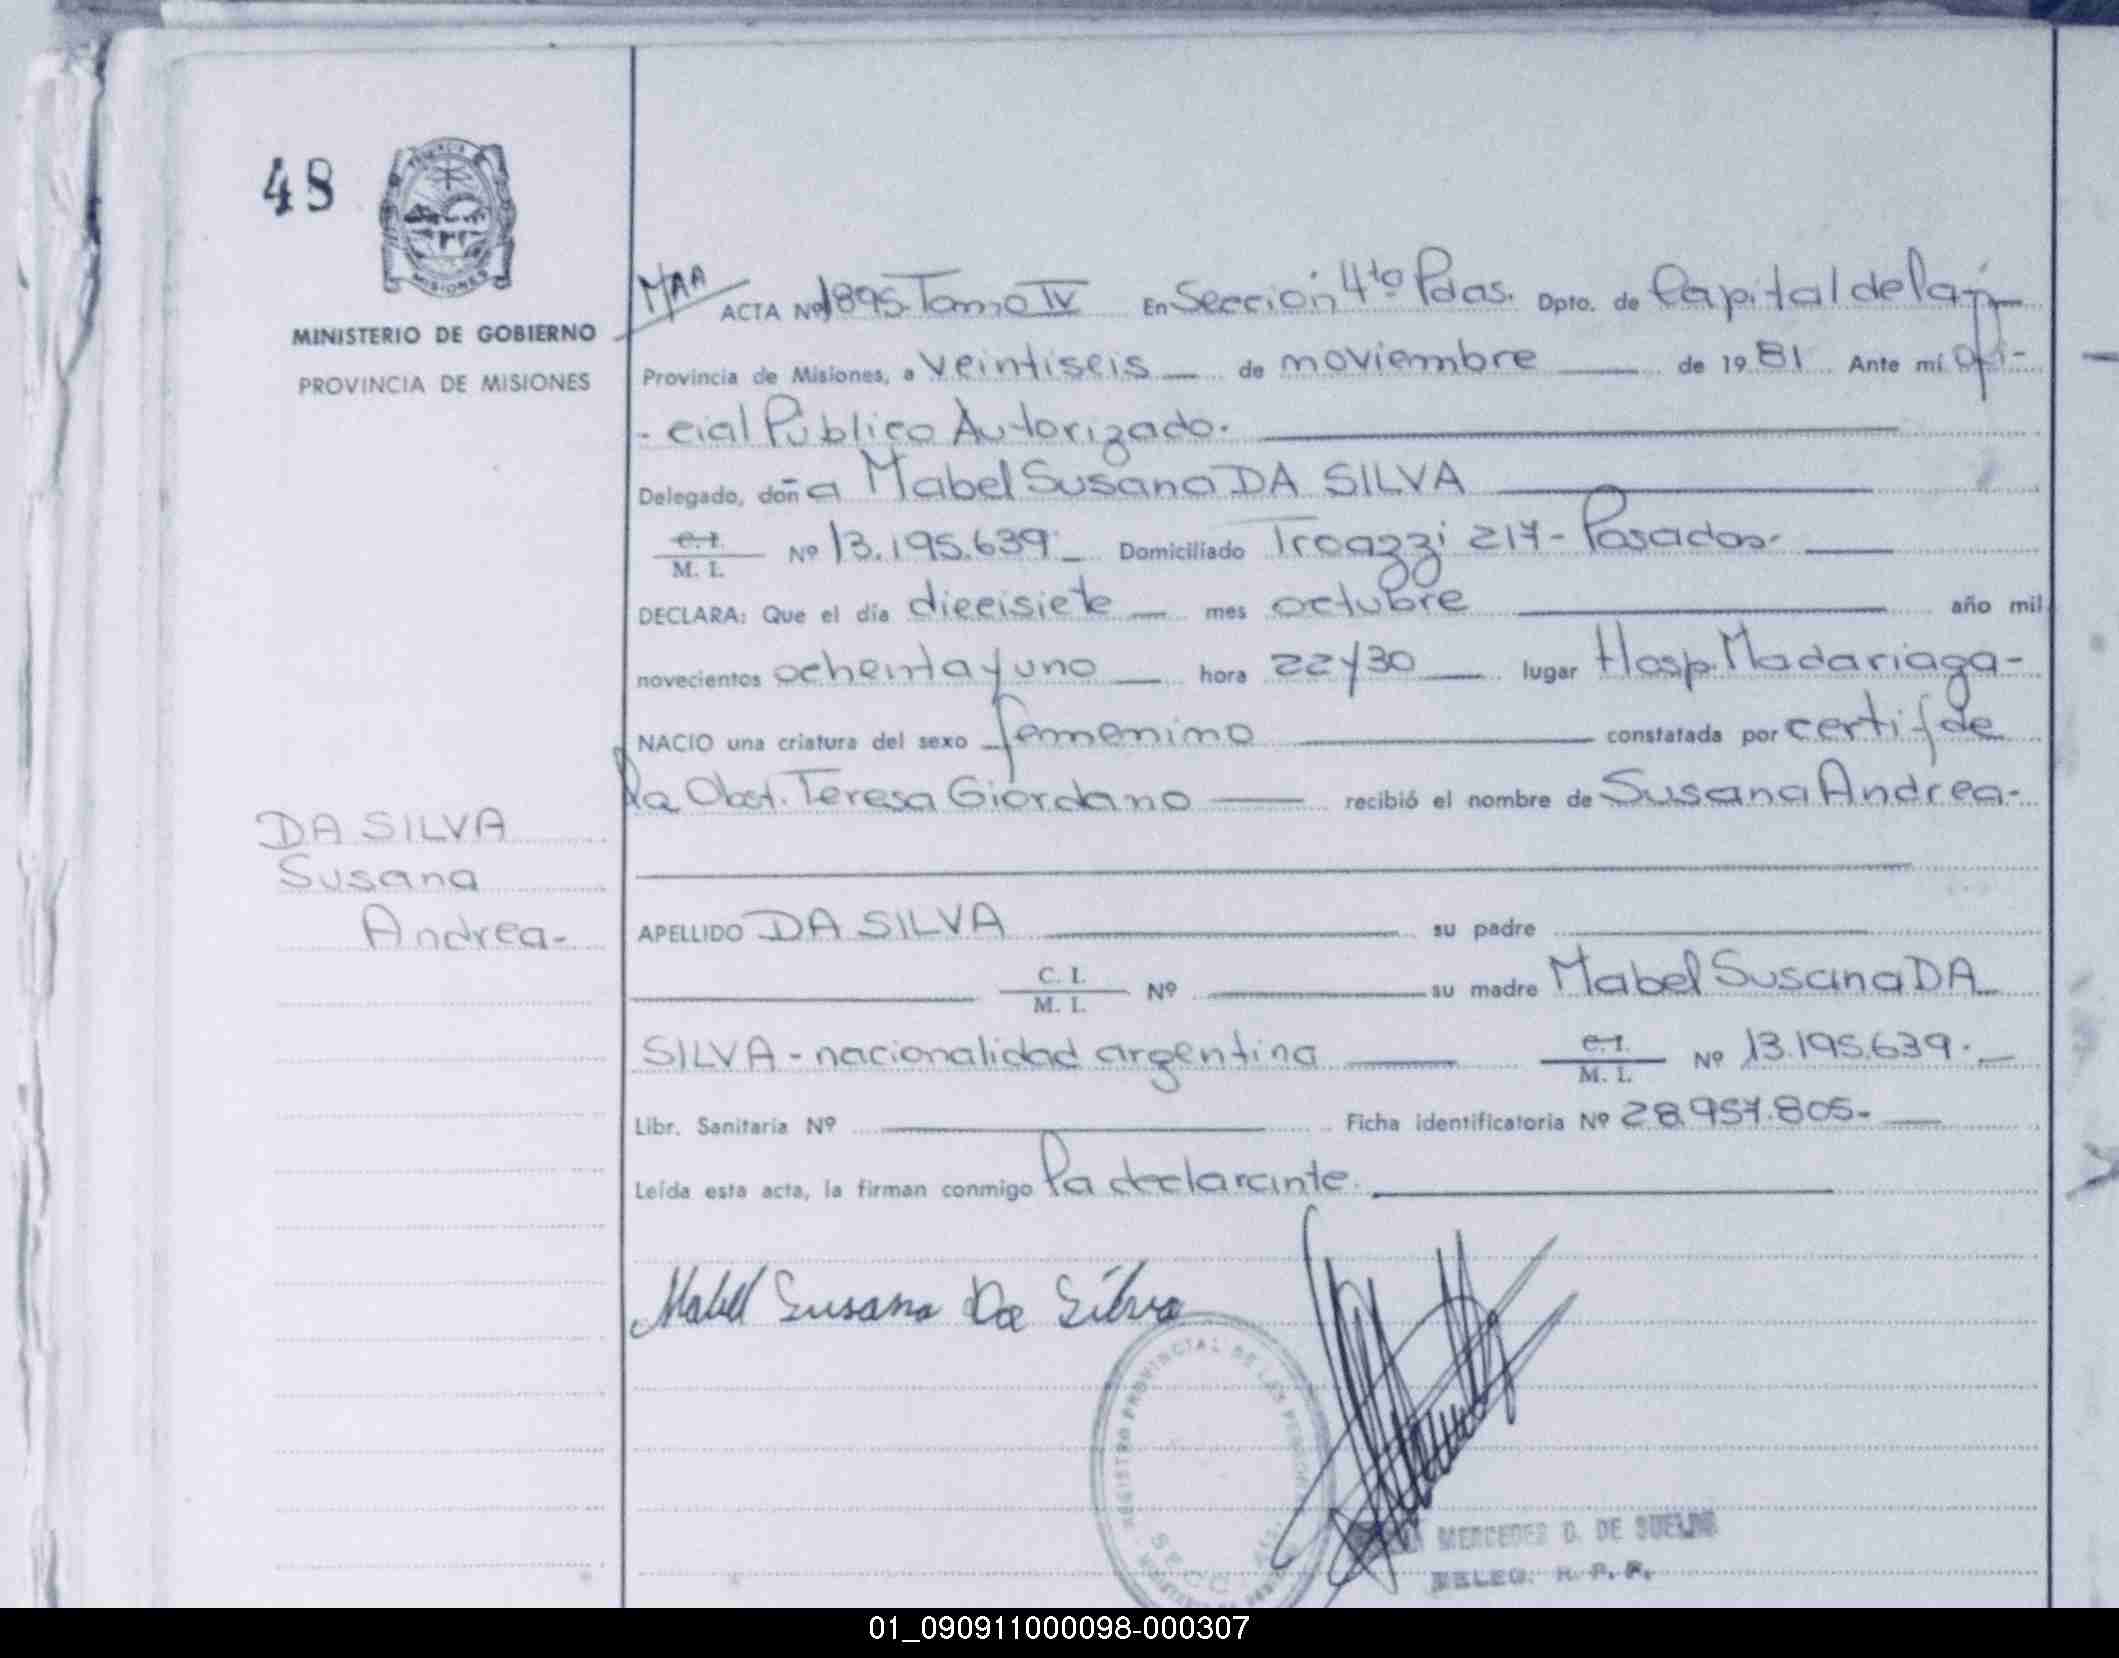 48
MINISTERIO DE GOBIERNO
PROVINCIA DE MISIONES
MAA
ACTA Nº 1895. Tomo IV En Sección 4to Pdas. Dpto. de Capital de la
Provincia de Misiones, a veintiseis de noviembre de 1981 Ante mí Ofi-
-cial Público Autorizado.
Delegado, doña Mabel Susana DA SILVA
C. I.
M. I. Nº 13.195.639. Domiciliado 217 - Posadas.
DECLARA: Que el día diecisiete mes octubre año mil
novecientos ochenta y uno hora 22 y 30 lugar Hosp. Madariaga-
NACIO una criatura del sexo femenino constatada por certif de
la Obst. Teresa Giordano recibió el nombre de Susana Andrea-
DA SILVA
Susana
Andrea-
APELLIDO DA SILVA su padre
C. I.
M. I. Nº su madre Mabel Susana DA
SILVA - nacionalidad argentina C. I.
M. I. Nº 13.195.639.
Libr. Sanitaria Nº Ficha identificatoria Nº 28.957.805-
Leída esta acta, la firman conmigo la declarante.
Mabel Susana Da Silva
REGISTRO PROVINCIAL DE LAS PERSONAS
SECC
MERCEDES D. DE
DELEG. R. P. P.
01_090911000098-000307